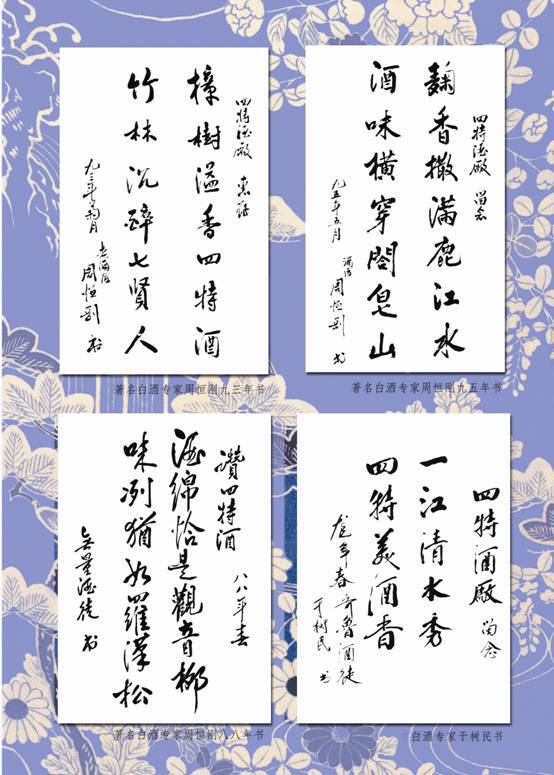 四特酒廠 惠存
樟樹溢香四特酒
竹林沉醉七賢人
九三年菊月
周恒剛 书
著名白酒专家周恒刚九三年书
四特酒廠 留念
麴香撒滿鹿江水
酒味橫穿閤皂山
九五年五月
酒徒 周恒剛 书
著名白酒专家周恒刚九五年书
讚四特酒 八八年春
酒綿恰是觀音柳
味冽猶如羅漢松
無量酒徒 书
著名白酒专家周恒刚八八年书
四特酒廠 留念
一江清水秀
四特美酒香
龙年春齐鲁酒徒
于树民 书
白酒专家于树民书